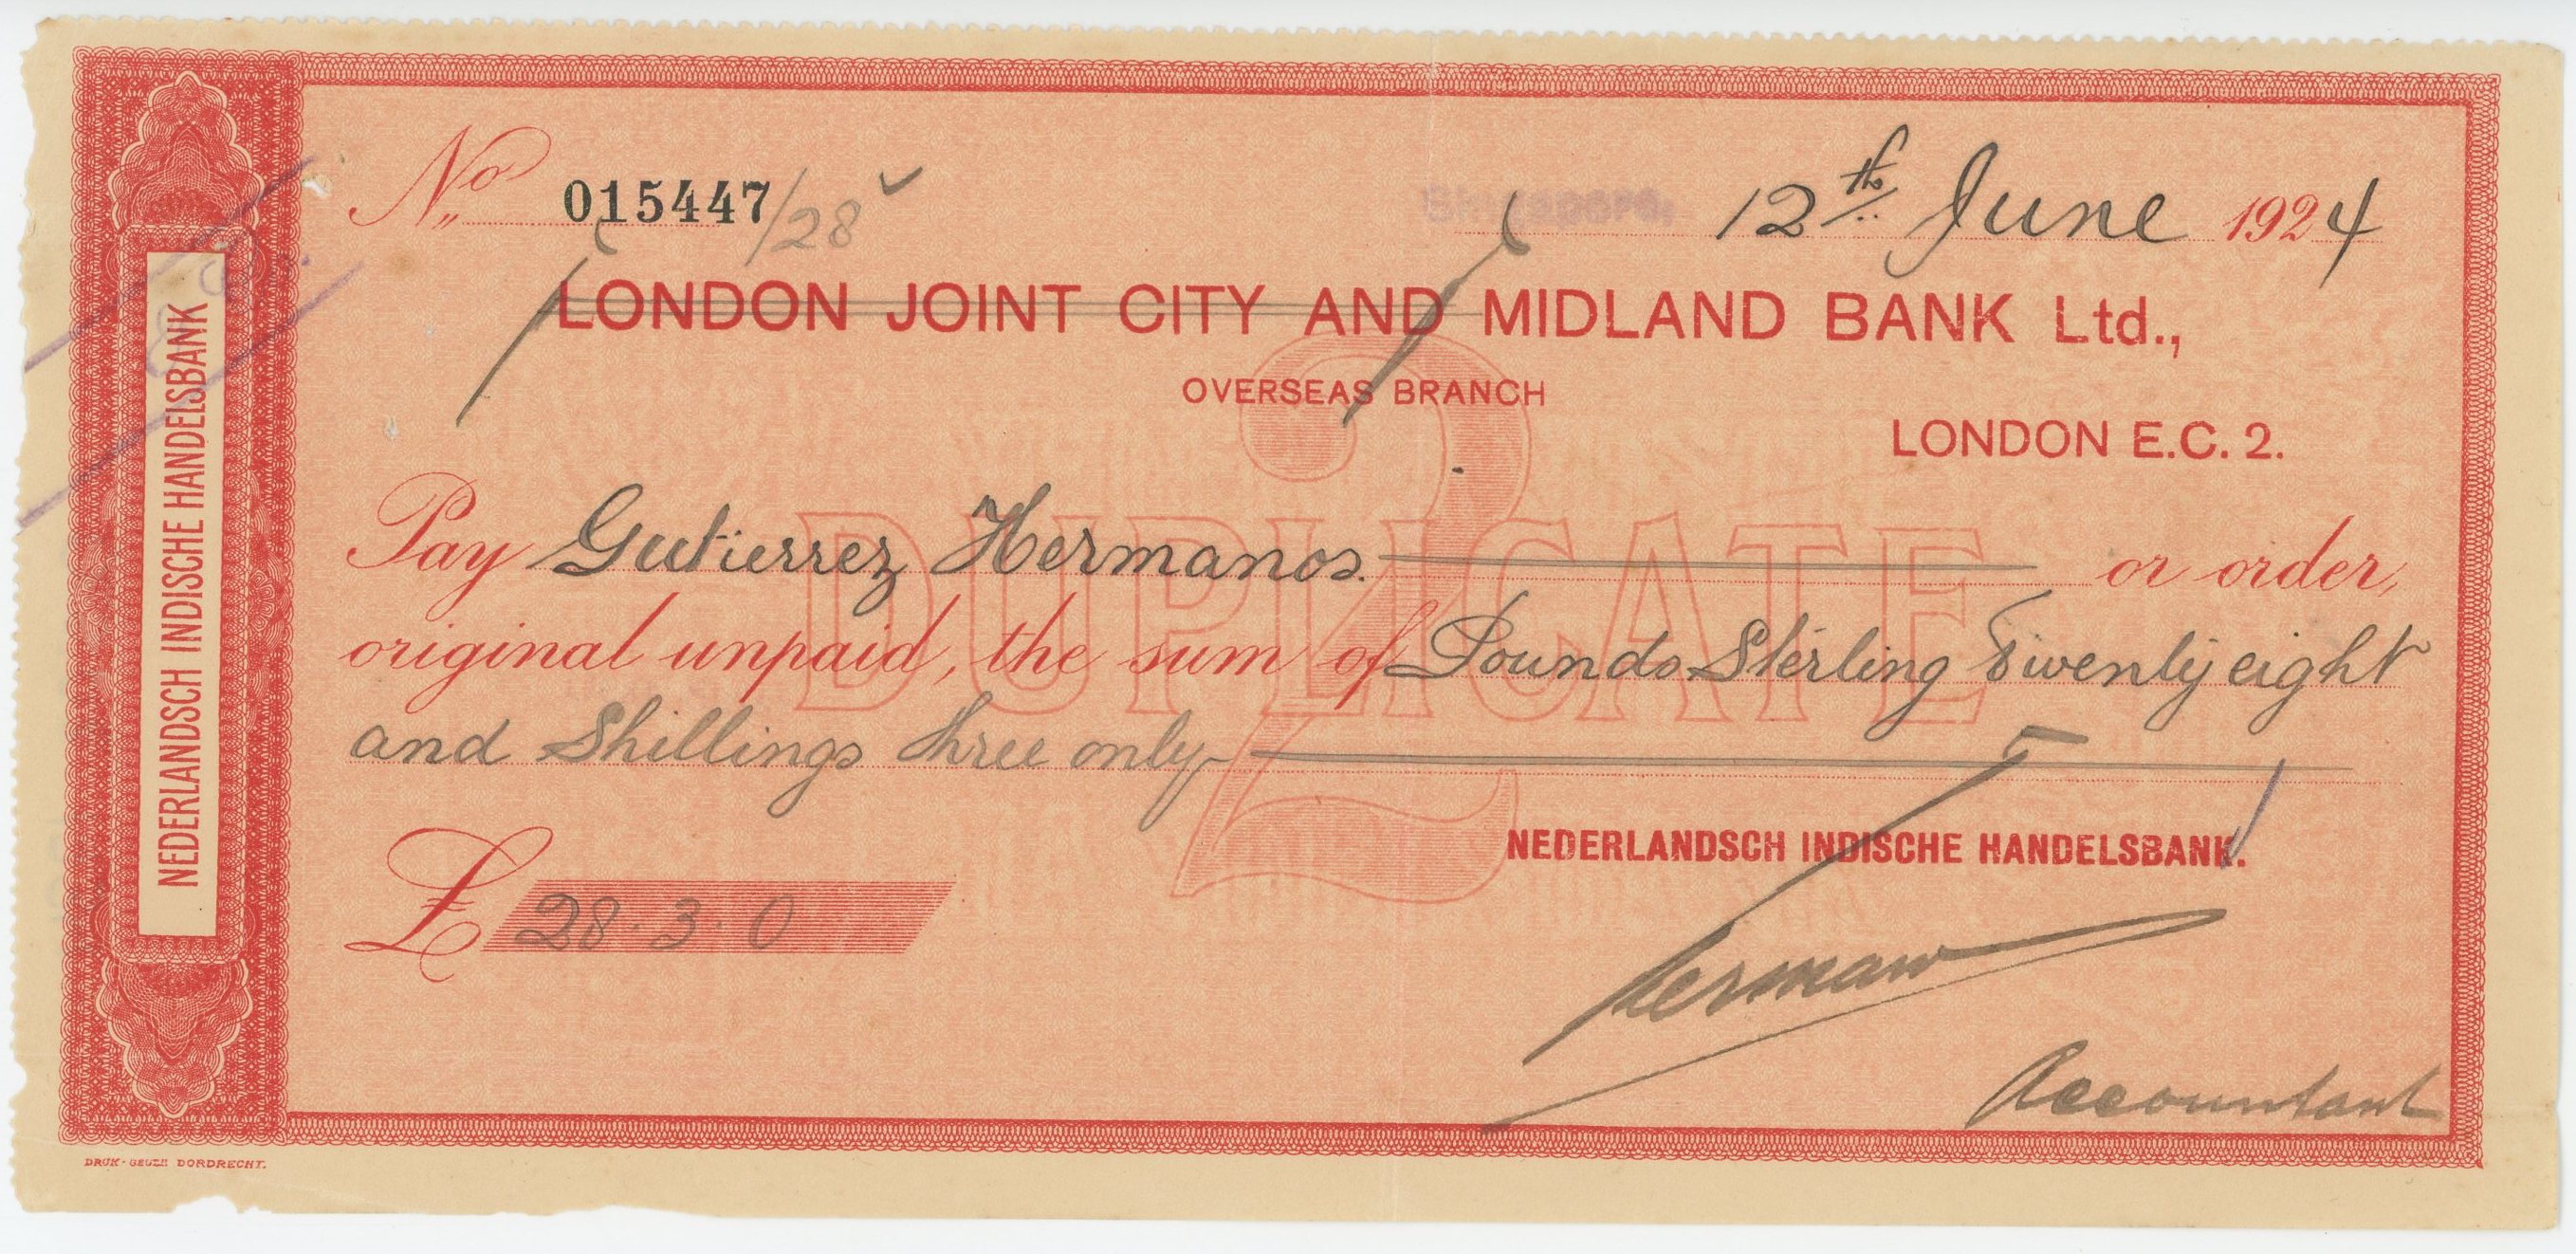 No 015447/28
Singapore, 12th June 1924
LONDON JOINT CITY AND MIDLAND BANK Ltd.,
OVERSEAS BRANCH
LONDON E.C. 2.
2
DUPLICATE
Pay Gutierrez Hermanos. or order,
original unpaid, the sum of Pounds Sterling Twenty eight
and Shillings three only
£ 28.3.0
NEDERLANDSCH INDISCHE HANDELSBANK.
Accountant
NEDERLANDSCH INDISCHE HANDELSBANK
DRUK-GEUZE DORDRECHT.